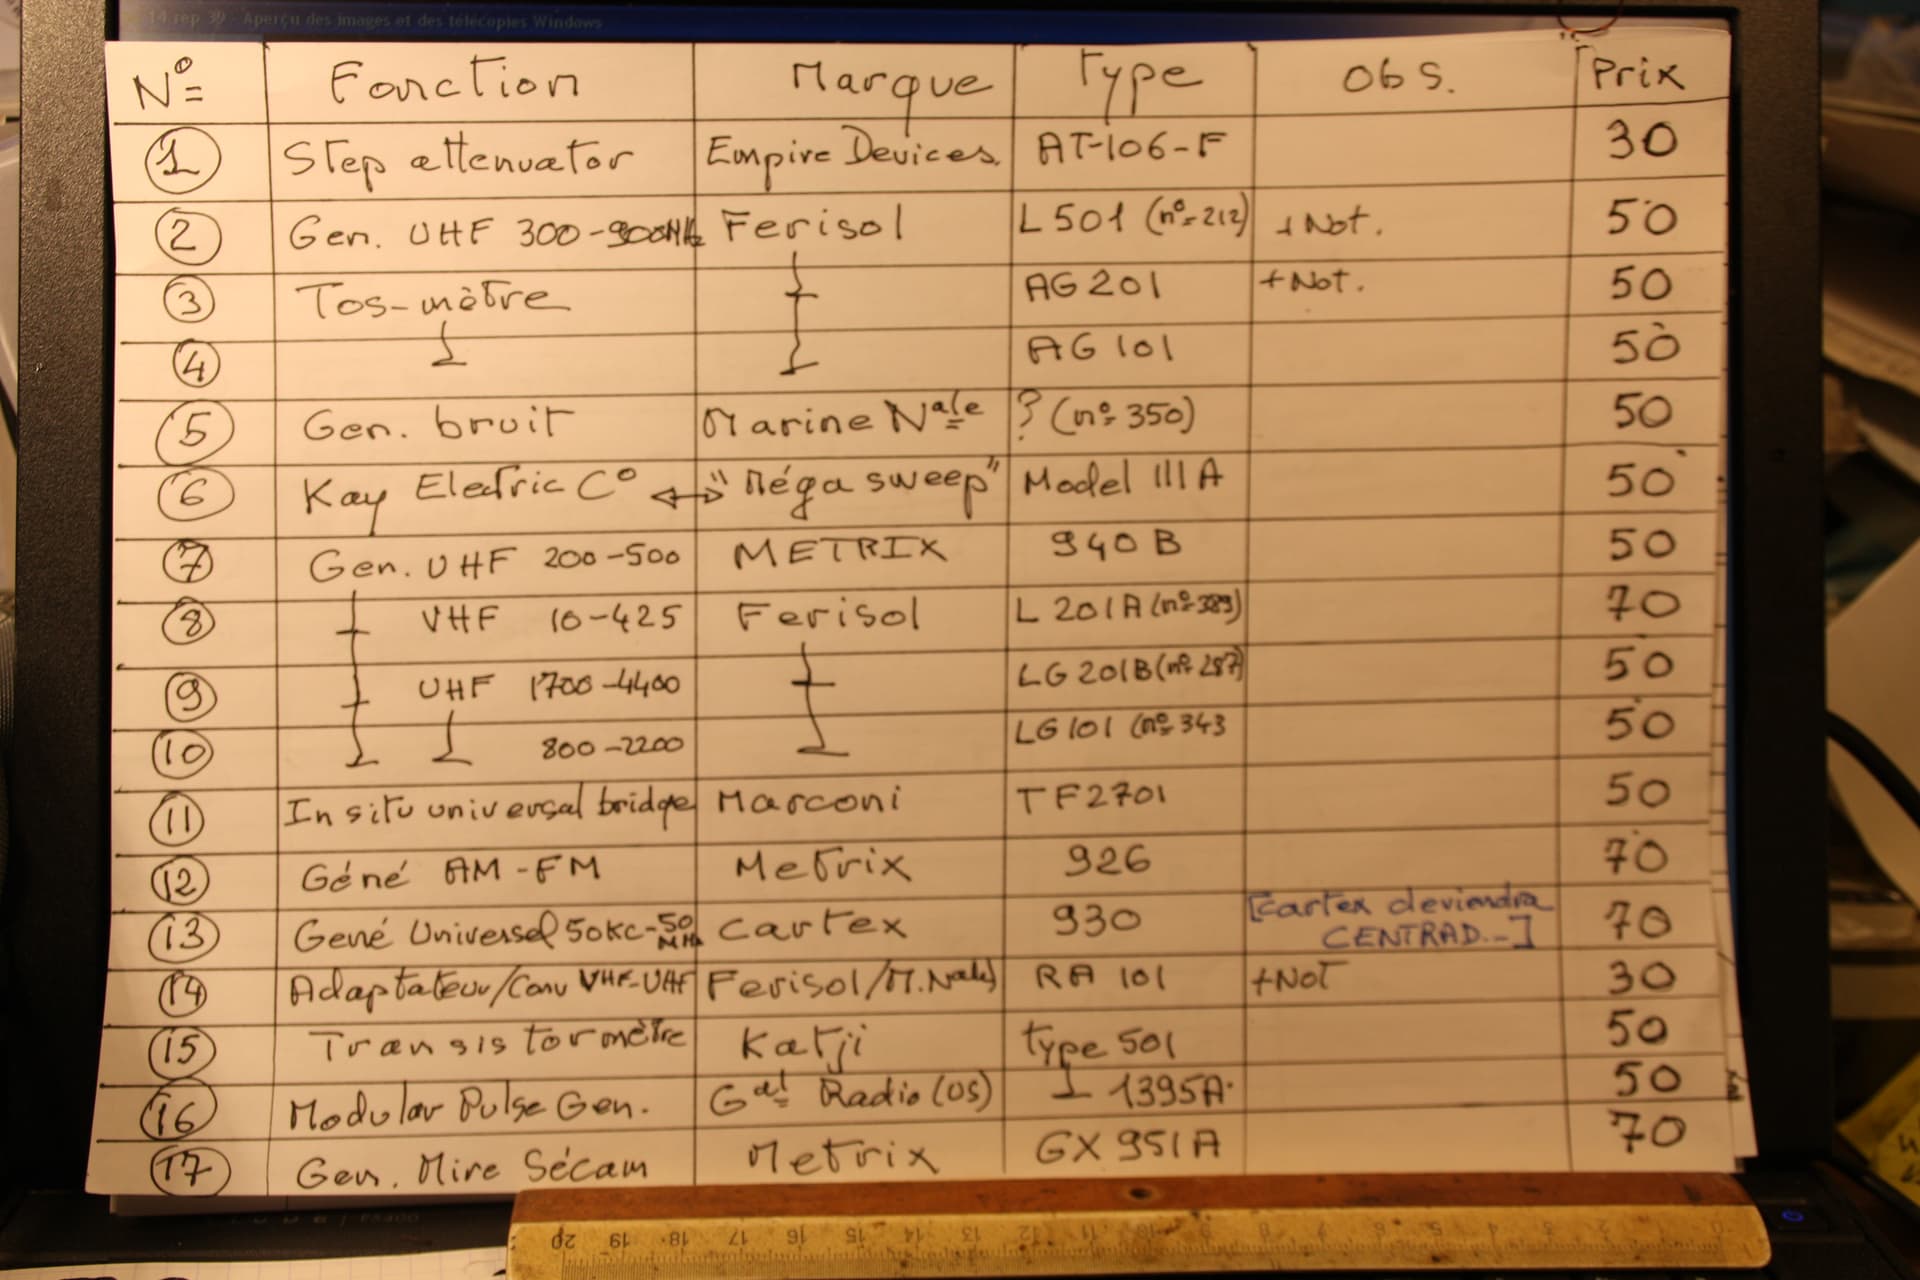 14 rep 39 - Aperçu des images et des télécopies Windows
N° Fonction Marque Type Obs. Prix
1 Step attenuator Empire Devices. AT-106-F 30
2 Gen. UHF 300-900MHz Ferisol L501 (n°212) + Not. 50
3 Tos-mètre AG201 + Not. 50
4 AG101 50
5 Gen. bruit Marine Nale ? (n° 350) 50
6 Kay Electric C° ↔ "Méga sweep" Model III A 50
7 Gen. UHF 200-500 METRIX 940 B 50
8 VHF 10-425 Ferisol L 201A (n°389) 70
9 UHF 1700-4400 LG 201B (n° 287) 50
10 800-2200 LG101 (n° 343 50
11 In situ universal bridge Marconi TF2701 50
12 Géné AM-FM Metrix 926 70
13 Gené Universel 50Kc-50 MHz Cartex 930 [Cartex deviendra CENTRAD..] 70
14 Adaptateur/Conv VHF-UHF Ferisol/M.Nale) RA 101 +Not 30
15 Transistormètre Katji type 501 50
16 Modular Pulse Gen. Gal Radio (US) 1395A. 50
17 Gen. Mire Sécam Metrix GX 951A 70
20 19 18 17 16 15 14 13 12 11 10 9 8 7 6 5 4 3 2 1 0